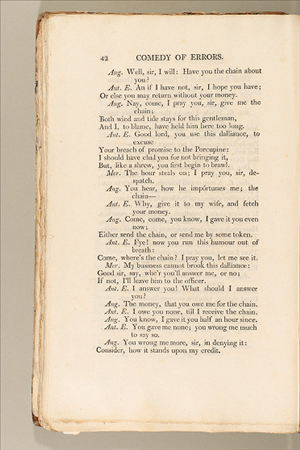 42 COMEDY OF ERRORS.
Ang. Well, sir, I will: Have you the chain about
you?
Ant. E. An if I have not, sir, I hope you have;
Or else you may return without your money.
Ang. Nay, come, I pray you, sir, give me the
chain;
Both wind and tide stays for this gentleman,
And I, to blame, have held him here too long.
Ant. E. Good lord, you use this dalliance, to
excuse
Your breach of promise to the Porcupine:
I should have chid you for not bringing it,
But, like a shrew, you first begin to brawl.
Mer. The hour steals on; I pray you, sir, de-
spatch.
Ang. You hear, how he impórtunes me; the
chain—
Ant. E. Why, give it to my wife, and fetch
your money.
Ang. Come, come, you know, I gave it you even
now;
Either send the chain, or send me by some token.
Ant. E. Fye! now you run this humour out of
breath:
Come, where's the chain? I pray you, let me see it.
Mer. My business cannot brook this dalliance:
Good sir, say, whe'r you'll answer me, or no;
If not, I'll leave him to the officer.
Ant. E. I answer you! What should I answer
you?
Ang. The money, that you owe me for the chain.
Ant. E. I owe you none, till I receive the chain.
Ang. You know, I gave it you half an hour since.
Ant. E. You gave me none; you wrong me much
to say so.
Ang. You wrong me more, sir, in denying it:
Consider, how it stands upon my credit.